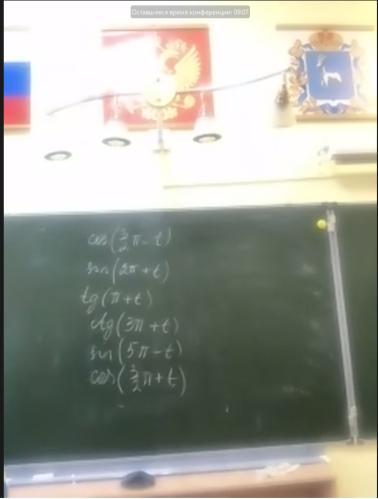 Оставшееся время конференции: 09:07
cos(3/2 π - t)
sin(2π + t)
tg(π + t)
ctg(3π + t)
sin(5π - t)
cos(3/2 π + t)